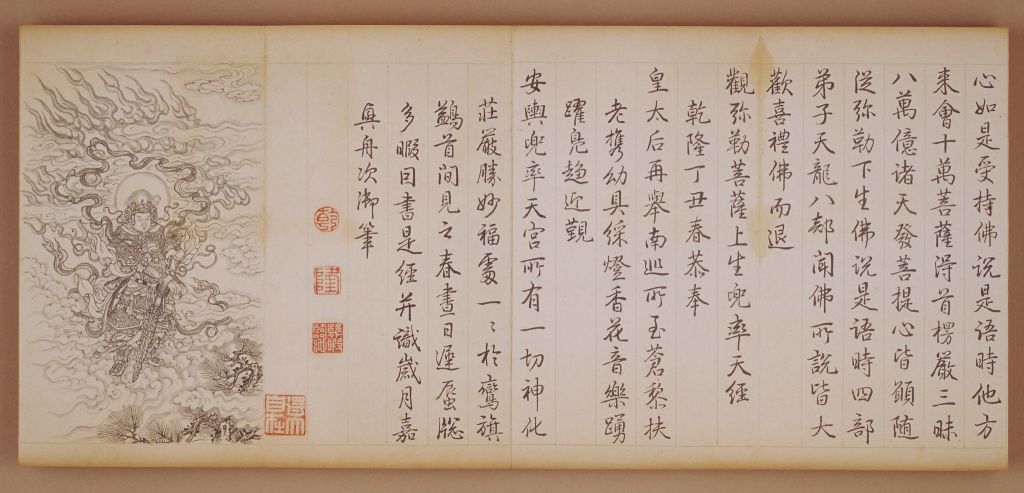 心如是受持佛说是语時他方
来會十萬菩薩得首楞嚴三昧
八萬億诸天發菩提心皆願随
從弥勒下生佛说是语時四部
弟子天龍八部聞佛所説皆大
歡喜禮佛而退
觀弥勒菩薩上生兜率天經
乾隆丁丑春恭奉
皇太后再舉南巡所至蒼黎扶
老攜幼具綵燈香花音樂踴
躍鳧趨近覲
安輿兜率天宫所有一切神化
莊嚴勝妙福處一〻於鸞旗
鷁首间見之春晝日遲蜃牕
多暇因書是經并識歲月嘉
興舟次御筆
乾
隆
得大自在